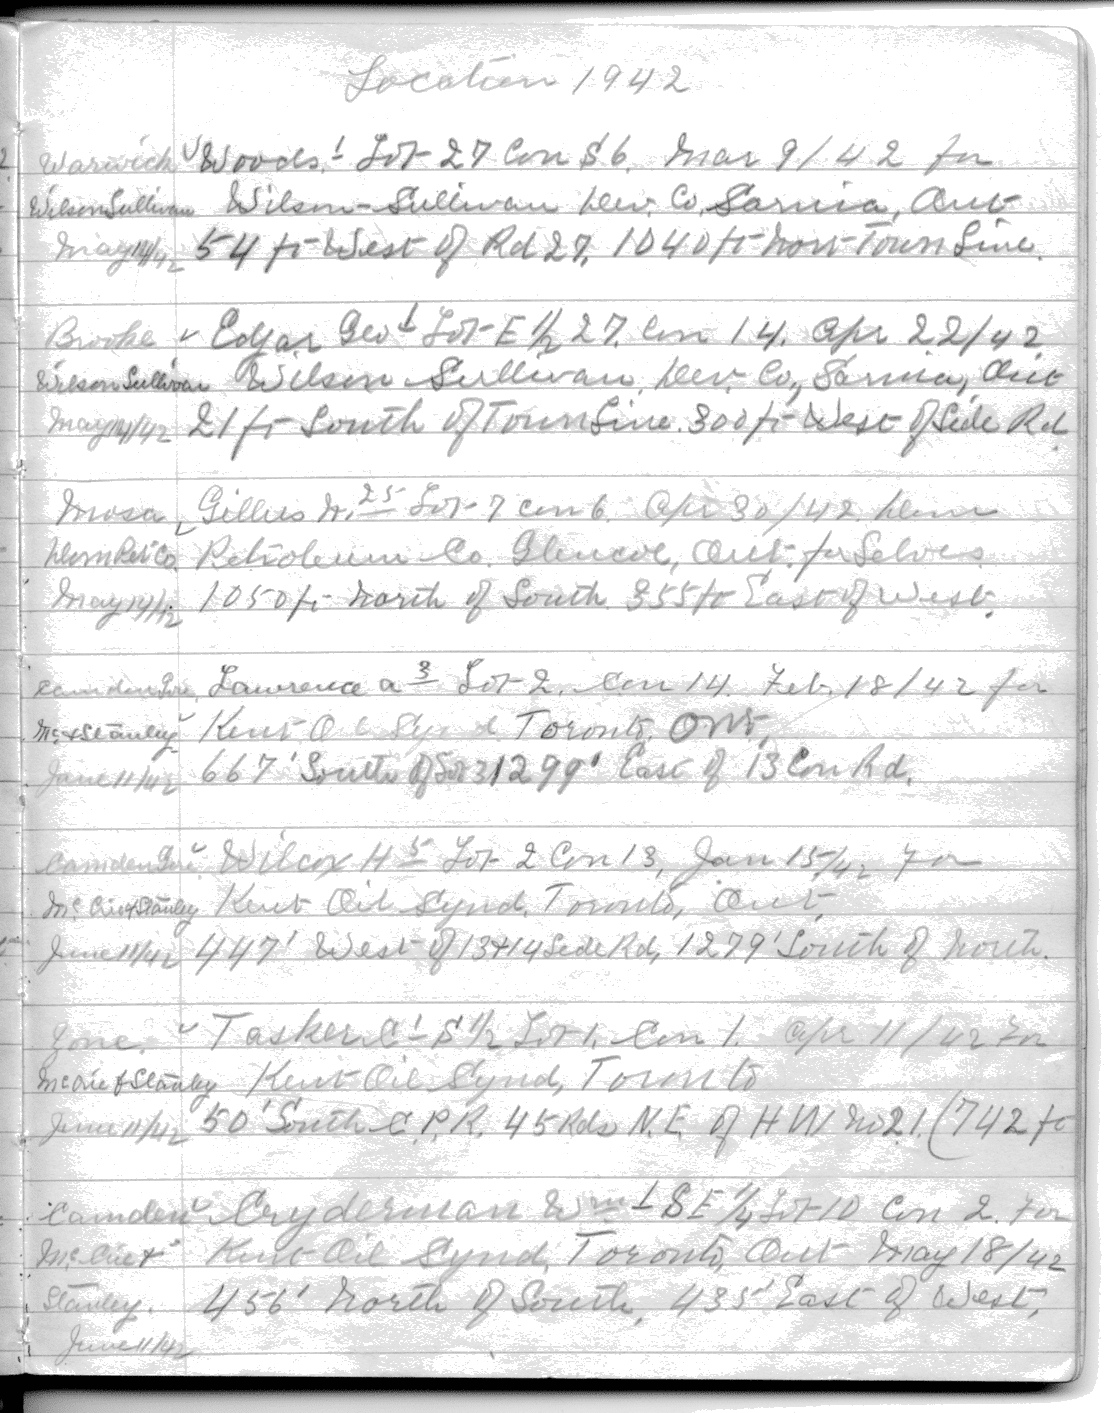 Location 1942
Warwick ✓ Woods. 1 Lot 27 Con S 6. Mar 9/42 for
Wilson Sullivan Wilson-Sullivan Dev. Co, Sarnia, Ont
May 14/42 54 ft West of Rd 27, 1040 ft Town Line.
Brooke ✓ Edgar Geo 1 Lot E 1/2 27. Con 14. Apr 22/42
Wilson Sullivan Wilson Sullivan, Dev. Co., Sarnia, Ont
May 14/42 21 ft South of Town Line. 300 ft West of Side Rd.
Mosa ✓ Gillies N. 25 Lot 7 Con 6. Apr 30/42. Dom
Dom Pet Co. Petroleum Co. Glencoe, Ont. for Selves
May 14/42 1050 ft North of South. 355 ft East of West.
Camden Gore, Lawrence A 3 Lot 2. Con 14. Feb. 18/42 for
Mc & Stanley ✓ Kent Oil Synd Toronto, Ont,
June 11/42 667' South of Lot 3 1299' East of 13 Con Rd.
Camden Gore ✓ Wilcox H 5 Lot 2 Con 13, Jan 15/42 For
Stanley Kent Oil Synd. Toronto, Ont,
June 11/42 447' West of 13+14 Side Rd, 1279' South of North.
Zone. ✓ Tasker C 1 S 1/2 Lot 1. Con 1. Apr 11/42 For
& Stanley Kent Oil Synd, Toronto
June 11/42 50' South C.P.R. 45 Rds N.E. of H W No 21. (742 ft
Camden ✓ Cryderman Wm 1 SE 1/4 Lot 10 Con 2. For
Kent Oil Synd, Toronto, Ont May 18/42
Stanley. 456' North of South, 435' East of West,
June 11/42